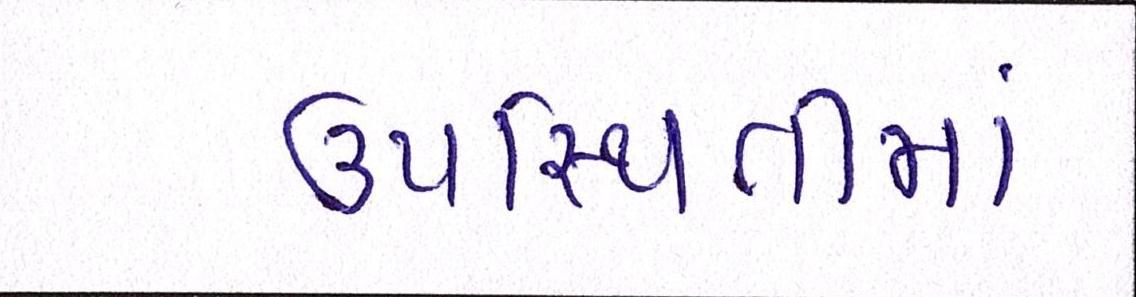 ઉપસ્થિતીમાં